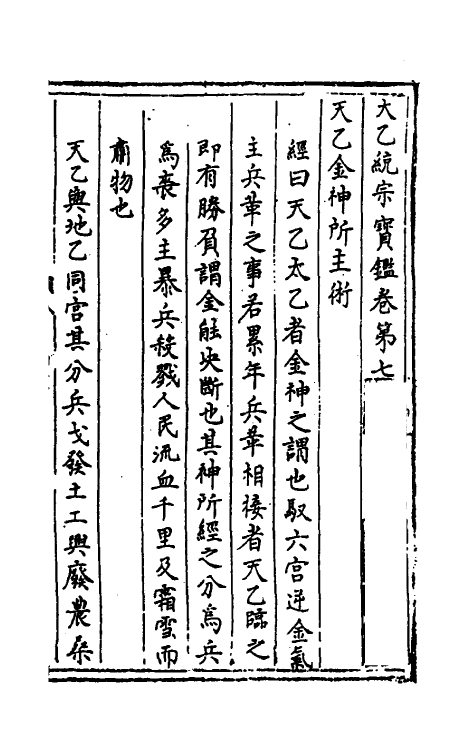 大乙統宗寳鑑卷第七
天乙金神所主術
經曰天乙太乙者金神之謂也馭六宫逆金氣
主兵革之事若累年兵革相接者天乙臨之
即有勝負謂金能决斷也其神所經之分爲兵
爲喪多主暴兵殺戮人民流血千里及霜雪而
肅物也
天乙與地乙同宫其分兵戈發土工興廢農桒